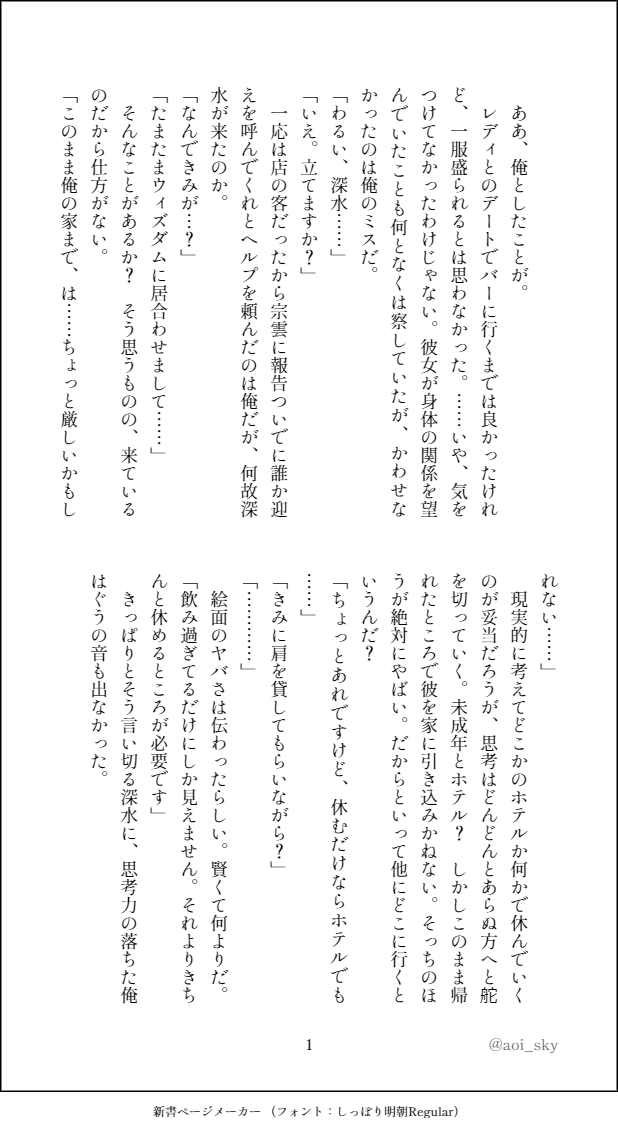 ああ、俺としたことが。
レディとのデートでバーに行くまでは良かったけれ
ど、一服盛られるとは思わなかった。……いや、気を
つけてなかったわけじゃない。彼女が身体の関係を望
んでいたことも何となくは察していたが、かわせな
かったのは俺のミスだ。
「わるい、深水……」
「いえ。立てますか？」
一応は店の客だったから宗雲に報告ついでに誰か迎
えを呼んでくれとヘルプを頼んだのは俺だが、何故深
水が来たのか。
「なんできみが…？」
「たまたまウィズダムに居合わせまして……」
そんなことがあるか？　そう思うものの、来ている
のだから仕方がない。
「このまま俺の家まで、は……ちょっと厳しいかもし
れない……」
現実的に考えてどこかのホテルか何かで休んでいく
のが妥当だろうが、思考はどんどんとあらぬ方へと舵
を切っていく。未成年とホテル？　しかしこのまま帰
れたところで彼を家に引き込みかねない。そっちのほ
うが絶対にやばい。だからといって他にどこに行くと
いうんだ？
「ちょっとあれですけど、休むだけならホテルでも
……」
「きみに肩を貸してもらいながら？」
「…………」
絵面のヤバさは伝わったらしい。賢くて何よりだ。
「飲み過ぎてるだけにしか見えません。それよりきち
んと休めるところが必要です」
きっぱりとそう言い切る深水に、思考力の落ちた俺
はぐうの音も出なかった。
1
@aoi_sky
新書ページメーカー（フォント：しっぽり明朝Regular）